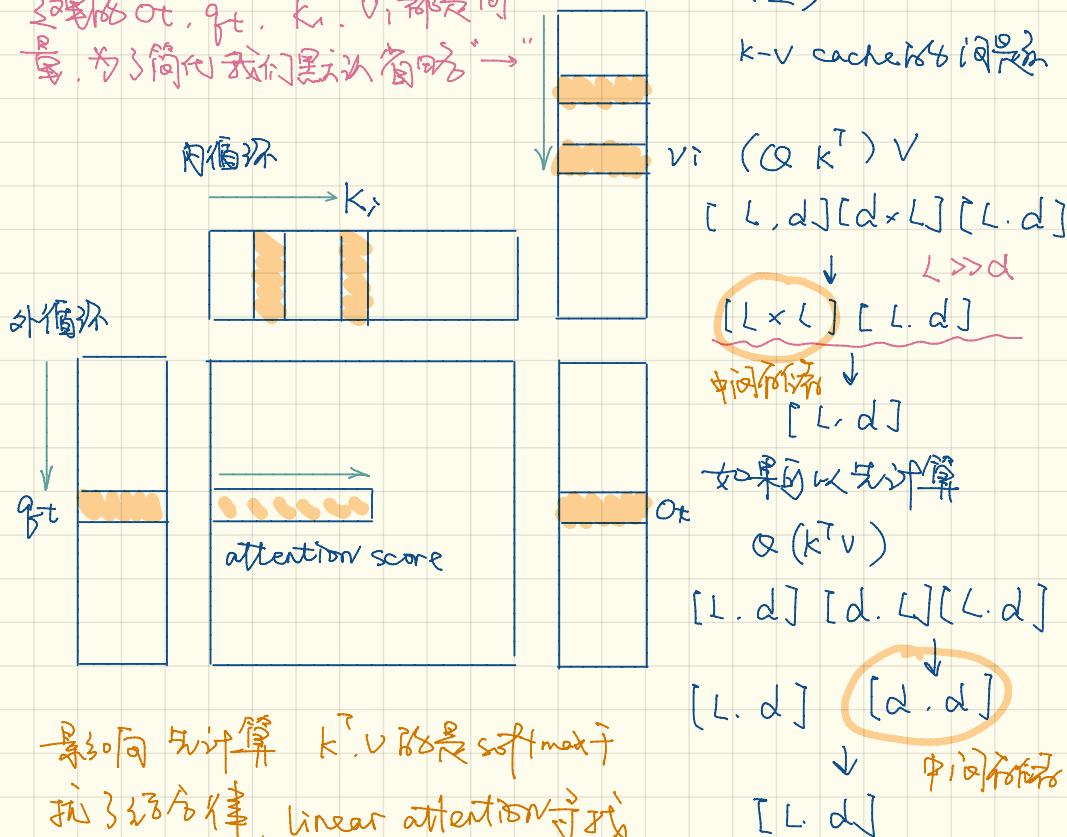 这里的 Ot, qt, Ki, Vi 都是向
量,为了简化我们默认省略"→"
内循环
Ki
外循环
qt
attention score
Vi
Ot
K-V cache的问题
(Q K^T) V
[L, d][d×L][L.d]
↓ L>>d
[L×L] [L.d]
中间存储 ↓
[L, d]
如果可以先计算
Q(K^T V)
[L.d] [d.L][L.d]
↓
[L.d] [d.d]
↓ 中间存储
[L.d]
影响向先计算 K^T.V 的是softmax干
扰了结合律, linear attention寻找